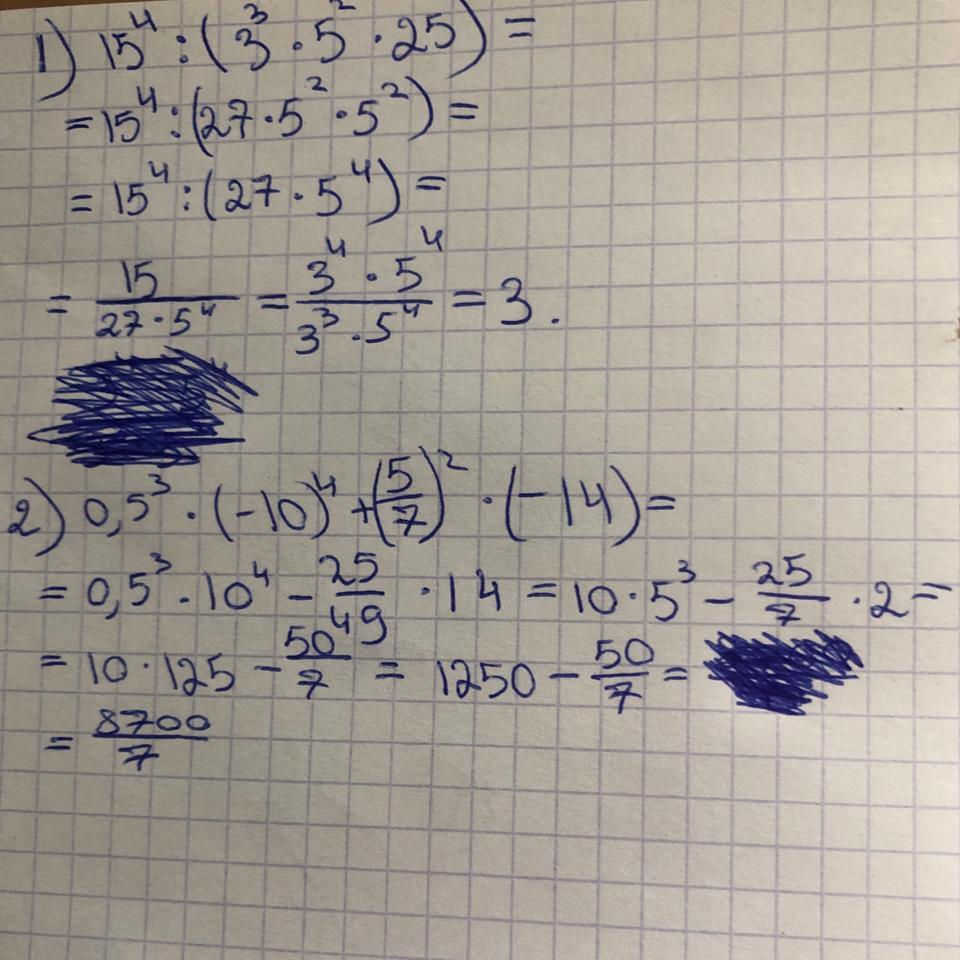 1) 15⁴ : (3³ · 5² · 25) =
= 15⁴ : (27 · 5² · 5²) =
= 15⁴ : (27 · 5⁴) =
= 15/(27 · 5⁴) = (3⁴ · 5⁴)/(3³ · 5⁴) = 3.
2) 0,5³ · (-10)⁴ + (5/7)² · (-14) =
= 0,5³ · 10⁴ - 25/49 · 14 = 10 · 5³ - 25/7 · 2 =
= 10 · 125 - 50/7 = 1250 - 50/7 =
= 8700/7